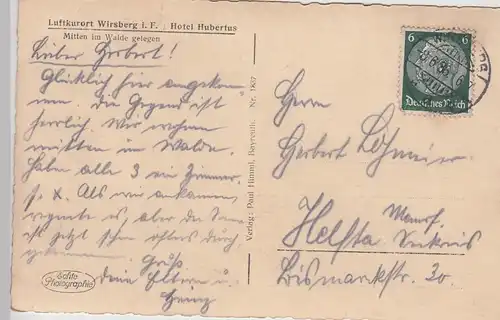 Luftkurort Wirsberg i. F. Hotel Hubertus
Mitten im Walde gelegen
Lieber Herbert!
Glücklich hier angekom
men. Die Gegend ist
herrlich. Wir wohnen
mitten im Walde.
Haben alle 3 ein Zimmer.
Als wir ankamen,
regnete es, aber die Sonne
ist jetzt schon öfters durch
gekommen. Gruß
Deine Eltern u.
Heinz
Echte
Photographie
Verlag: Paul Himml, Bayreuth. Nr. 1857
6 6
Deutsches Reich
Herrn
Herbert
Helfta
Mansf.
Seekreis
Bismarckstr. 30.